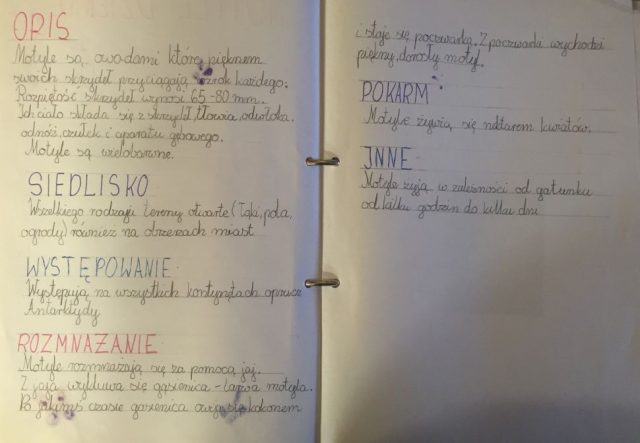 OPIS
Motyle są owadami które pięknem
swoich skrzydeł przyciągają wzrok każdego.
Rozpiętość skrzydeł wynosi 65-80 mm.
Ich ciało składa się z skrzydeł, tłowia, odwłoka,
odnóś, czułek i aparatu gębowego.
Motyle są wielobarwne.
SIEDLISKO
Wszelkiego rodzaju tereny otwarte (łąki, pola,
ogrody) również na obrzeżach miast
WYSTĘPOWANIE
Występują na wszystkich kontynętach oprucz
Antarktydy
ROZMNAŻANIE
Motyle rozmnażają się za pomocą jaj.
Z jaja wykluwa się gąsienica - larwa motyla.
Po jakimś czasie gąsienica owija się kokonem
i staje się poczwarką. Z poczwarki wychodzi
piękny, dorosły motyl.
POKARM
Motyle żywią się nektarem kwiatów.
INNE
Motyle żyją w zależności od gatunku
od kilku godzin do kilku dni